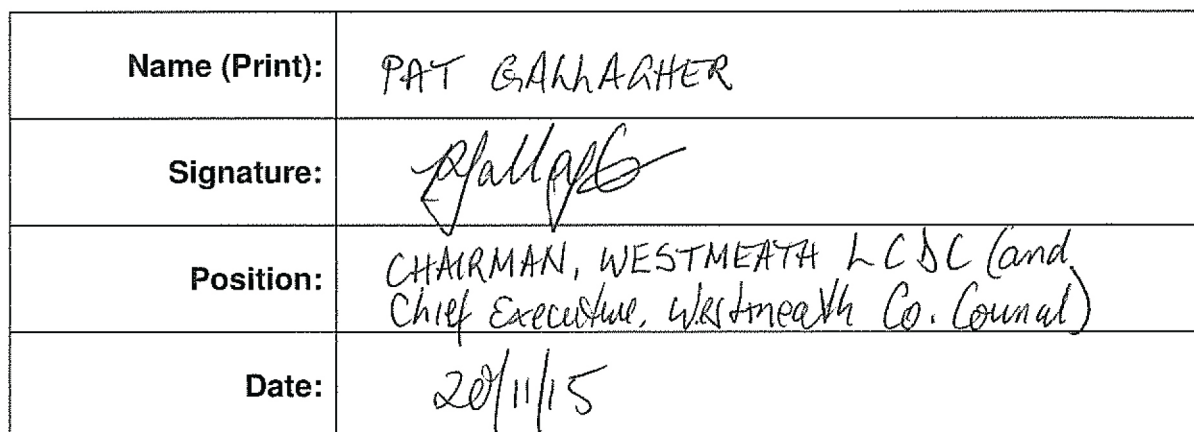 Name (Print): PAT GALLAGHER
Signature: PGallagher
Position: CHAIRMAN, WESTMEATH LCDC (and
Chief Executive, Westmeath Co. Council)
Date: 20/11/15